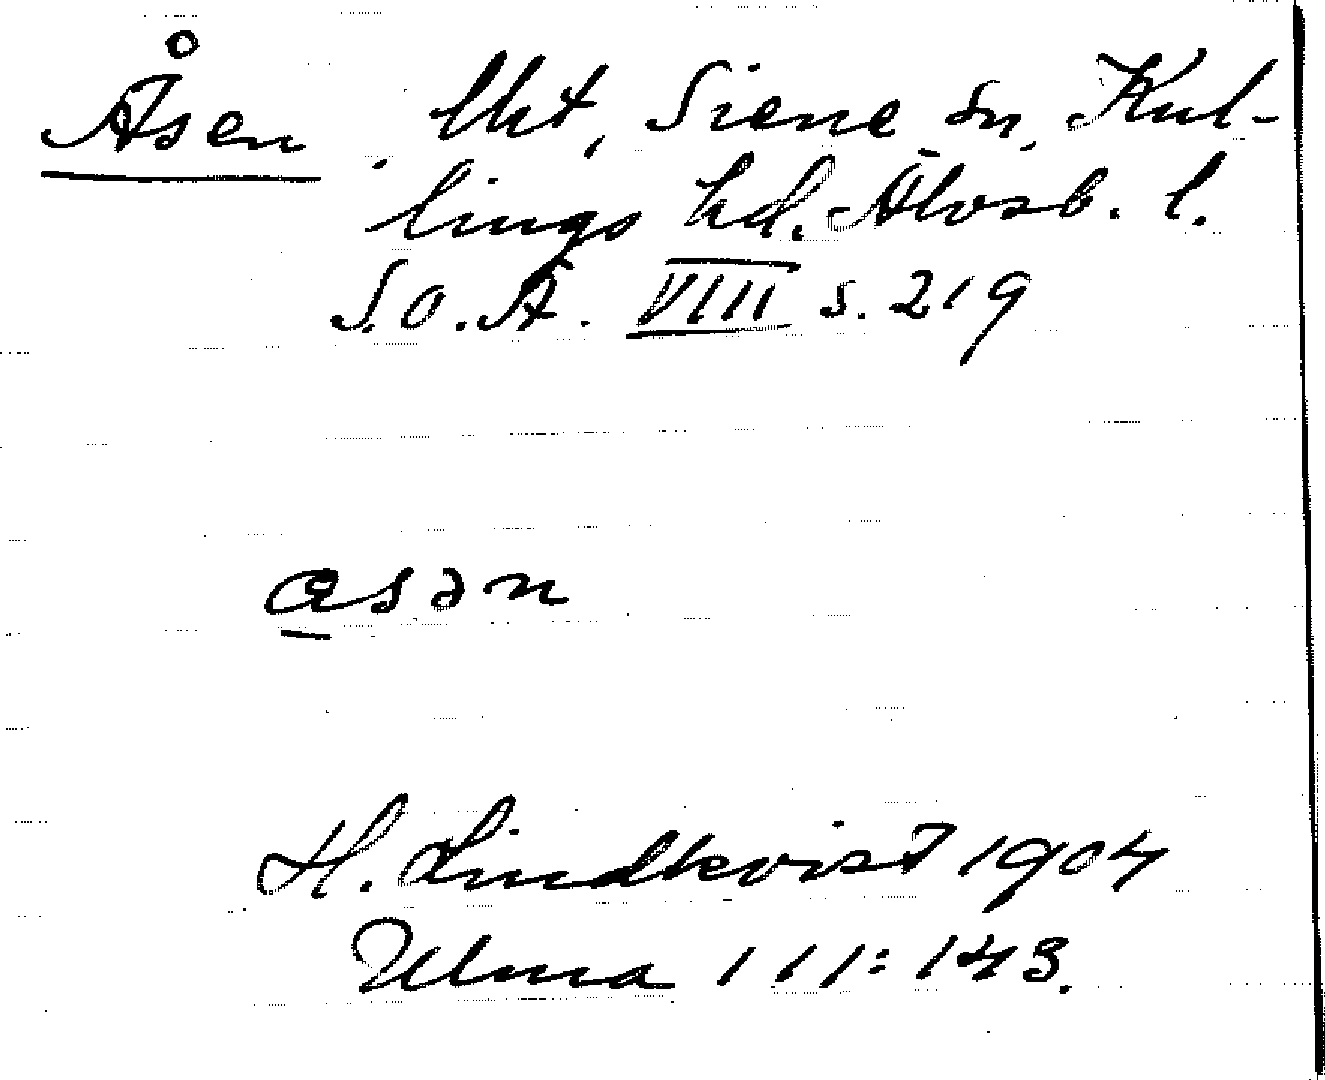 Åsen, lht, Siene sn, Kul-
lings hd. Älvsb. l.
S.O.Ä. VIII s. 219
asən
H. Lindkvist 1904
Ulma 111:143.